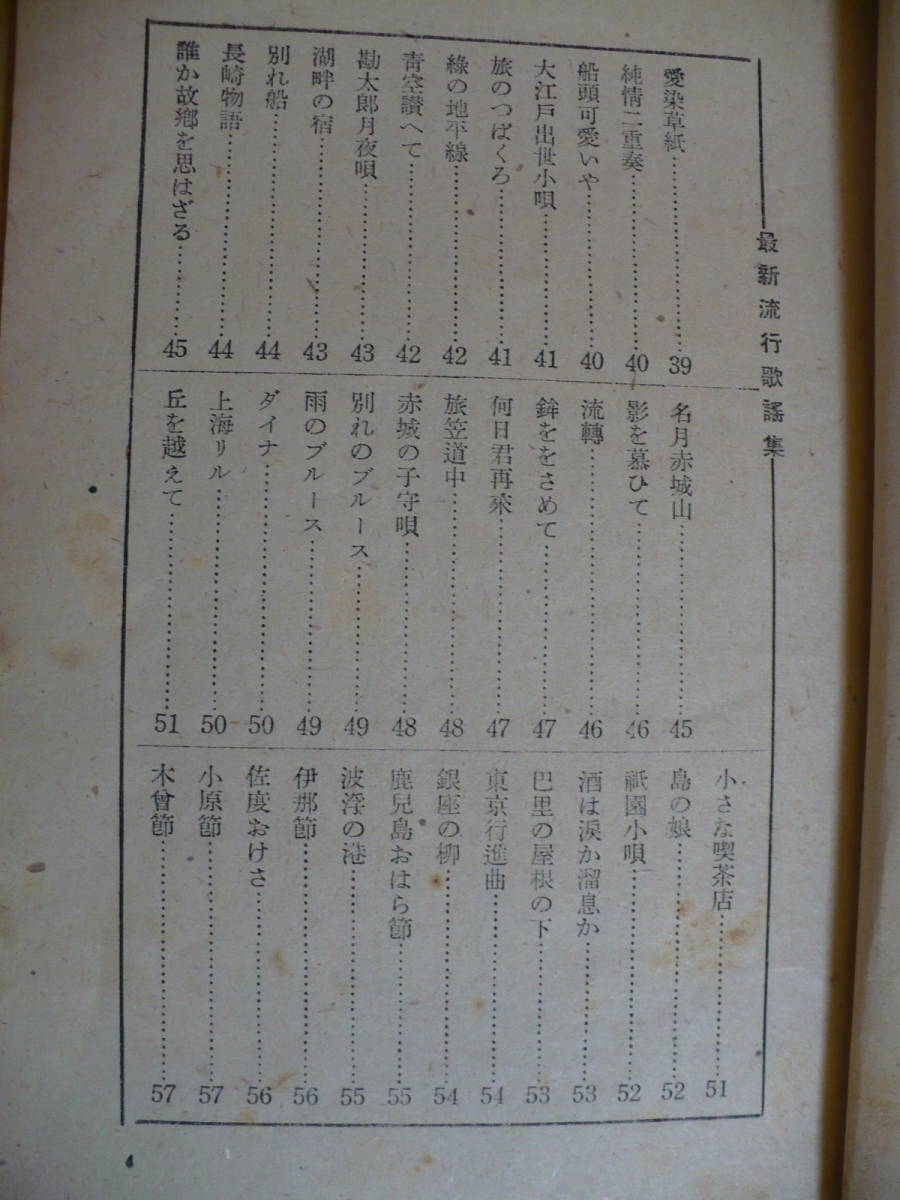 最新流行歌謠集
愛染草紙…………39
純情二重奏…………40
船頭可愛いや…………40
大江戸出世小唄…………41
旅のつばくろ…………41
綠の地平線…………42
靑空讃へて…………42
勘太郎月夜唄…………43
湖畔の宿…………43
別れ船…………44
長崎物語…………44
誰か故鄕を思はざる…………45
名月赤城山…………45
影を慕ひて…………46
流轉…………46
鉾ををさめて…………47
何日君再來…………47
旅笠道中…………48
赤城の子守唄…………48
別れのブルース…………49
雨のブルース…………49
ダイナ…………50
上海リル…………50
丘を越えて…………51
小さな喫茶店…………51
島の娘…………52
祇園小唄…………52
酒は淚か溜息か…………53
巴里の屋根の下…………53
東京行進曲…………54
銀座の柳…………54
鹿兒島おはら節…………55
波浮の港…………55
伊那節…………56
佐度おけさ…………56
小原節…………57
木曾節…………57
4